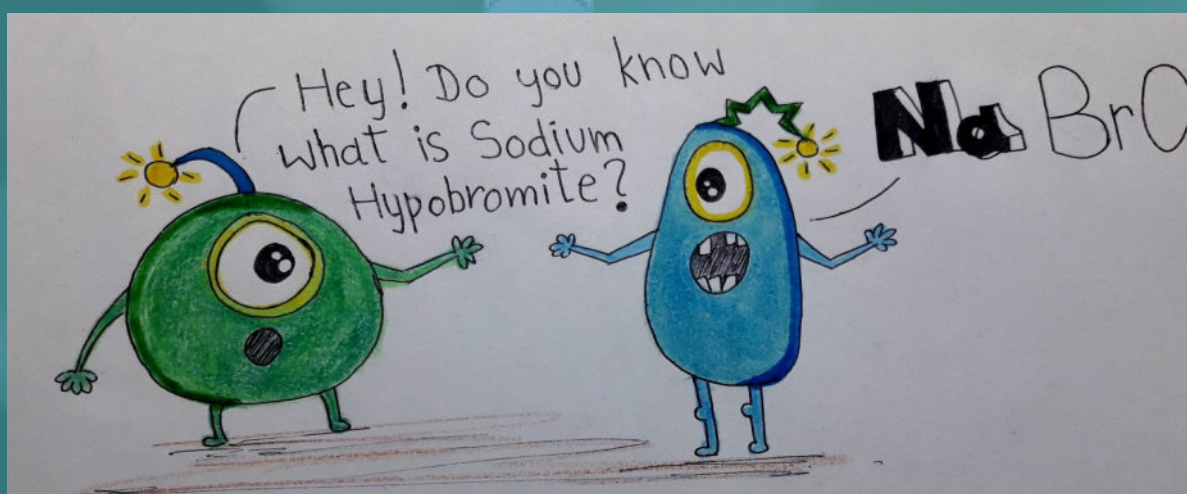 Hey! Do you know
what is Sodium
Hypobromite?
Na BrO